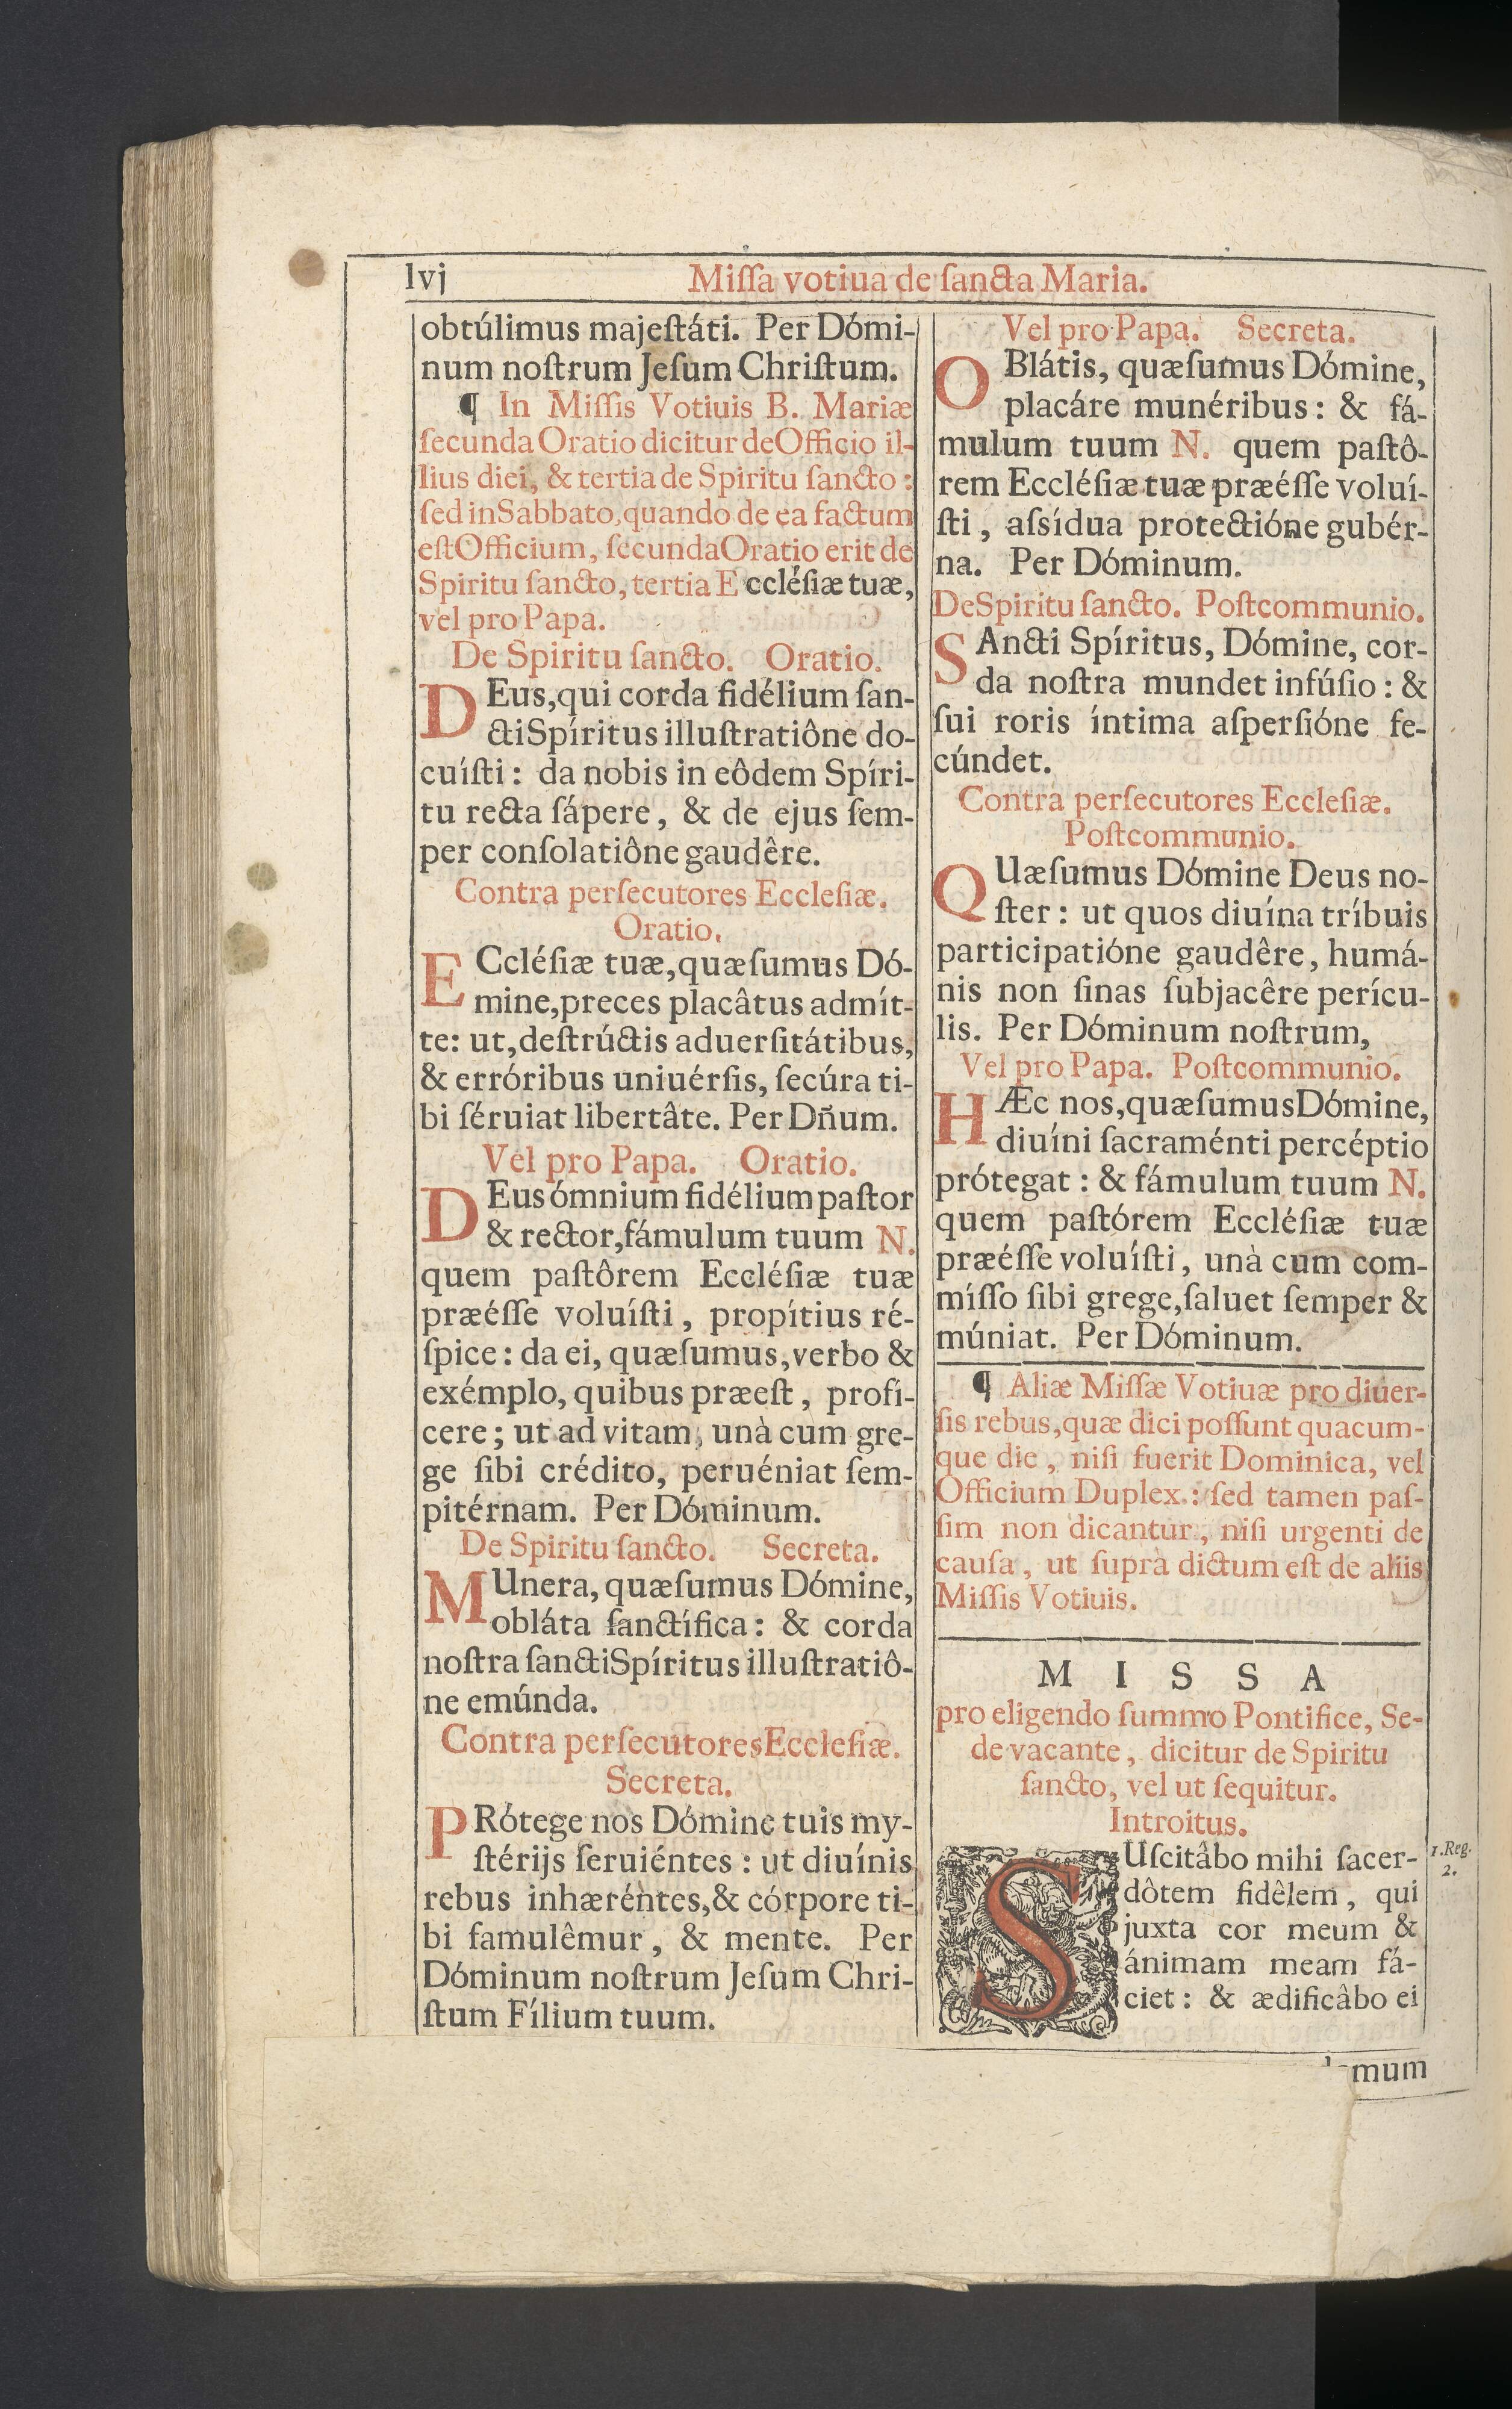 lvj
Miſſa votiua de ſancta Maria.
obtúlimus majeſtáti. Per Dómi-
num noſtrum Jeſum Chriſtum.
¶ In Miſſis Votiuis B. Mariæ
ſecunda Oratio dicitur de Officio il-
lius diei, & tertia de Spiritu ſancto:
ſed in Sabbato, quando de ea factum
eſt Officium, ſecunda Oratio erit de
Spiritu ſancto, tertia Eccléſiæ tuæ,
vel pro Papa.
De Spiritu ſancto. Oratio.
DEus, qui corda fidélium ſan-
cti Spíritus illuſtratiône do-
cuíſti: da nobis in eôdem Spíri-
tu recta ſápere, & de ejus ſem-
per conſolatiône gaudêre.
Contra perſecutores Eccleſiæ.
Oratio.
ECcléſiæ tuæ, quæſumus Dó-
mine, preces placâtus admít-
te: ut, deſtrúctis aduerſitátibus,
& erróribus uniuérſis, ſecúra ti-
bi ſéruiat libertâte. Per Dñum.
Vel pro Papa. Oratio.
DEus ómnium fidélium paſtor
& rector, fámulum tuum N.
quem paſtôrem Eccléſiæ tuæ
præéſſe voluíſti, propítius ré-
ſpice: da ei, quæſumus, verbo &
exémplo, quibus præeſt, profí-
cere; ut ad vitam, unà cum gre-
ge ſibi crédito, peruéniat ſem-
pitérnam. Per Dóminum.
De Spiritu ſancto. Secreta.
MUnera, quæſumus Dómine,
obláta ſanctífica: & corda
noſtra ſancti Spíritus illuſtratiô-
ne emúnda.
Contra perſecutores Eccleſiæ.
Secreta.
PRótege nos Dómine tuis my-
ſtérijs ſeruiéntes: ut diuínis
rebus inhæréntes, & córpore ti-
bi famulêmur, & mente. Per
Dóminum noſtrum Jeſum Chri-
ſtum Fílium tuum.
Vel pro Papa. Secreta.
OBlátis, quæſumus Dómine,
placáre munéribus: & fá-
mulum tuum N. quem paſtô-
rem Eccléſiæ tuæ præéſſe voluí-
ſti, aſsídua protectióne gubér-
na. Per Dóminum.
De Spiritu ſancto. Poſtcommunio.
SAncti Spíritus, Dómine, cor-
da noſtra mundet infúſio: &
ſui roris íntima aſperſióne fe-
cúndet.
Contra perſecutores Eccleſiæ.
Poſtcommunio.
QUæſumus Dómine Deus no-
ſter: ut quos diuína tríbuis
participatióne gaudêre, humá-
nis non ſinas ſubjacêre perícu-
lis. Per Dóminum noſtrum,
Vel pro Papa. Poſtcommunio.
HÆc nos, quæſumus Dómine,
diuíni ſacraménti percéptio
prótegat: & fámulum tuum N.
quem paſtórem Eccléſiæ tuæ
præéſſe voluíſti, unà cum com-
míſſo ſibi grege, ſaluet ſemper &
múniat. Per Dóminum.
¶ Aliæ Miſſæ Votiuæ pro diuer-
ſis rebus, quæ dici poſſunt quacum-
que die, niſi fuerit Dominica, vel
Officium Duplex: ſed tamen paſ-
ſim non dicantur, niſi urgenti de
cauſa, ut ſuprà dictum eſt de aliis
Miſſis Votiuis.
MISSA
pro eligendo ſummo Pontifice, Se-
de vacante, dicitur de Spiritu
ſancto, vel ut ſequitur.
Introitus.
SUſcitâbo mihi ſacer-
dôtem fidêlem, qui
juxta cor meum &
ánimam meam fá-
ciet: & ædificâbo ei
1. Reg.
2.
mum